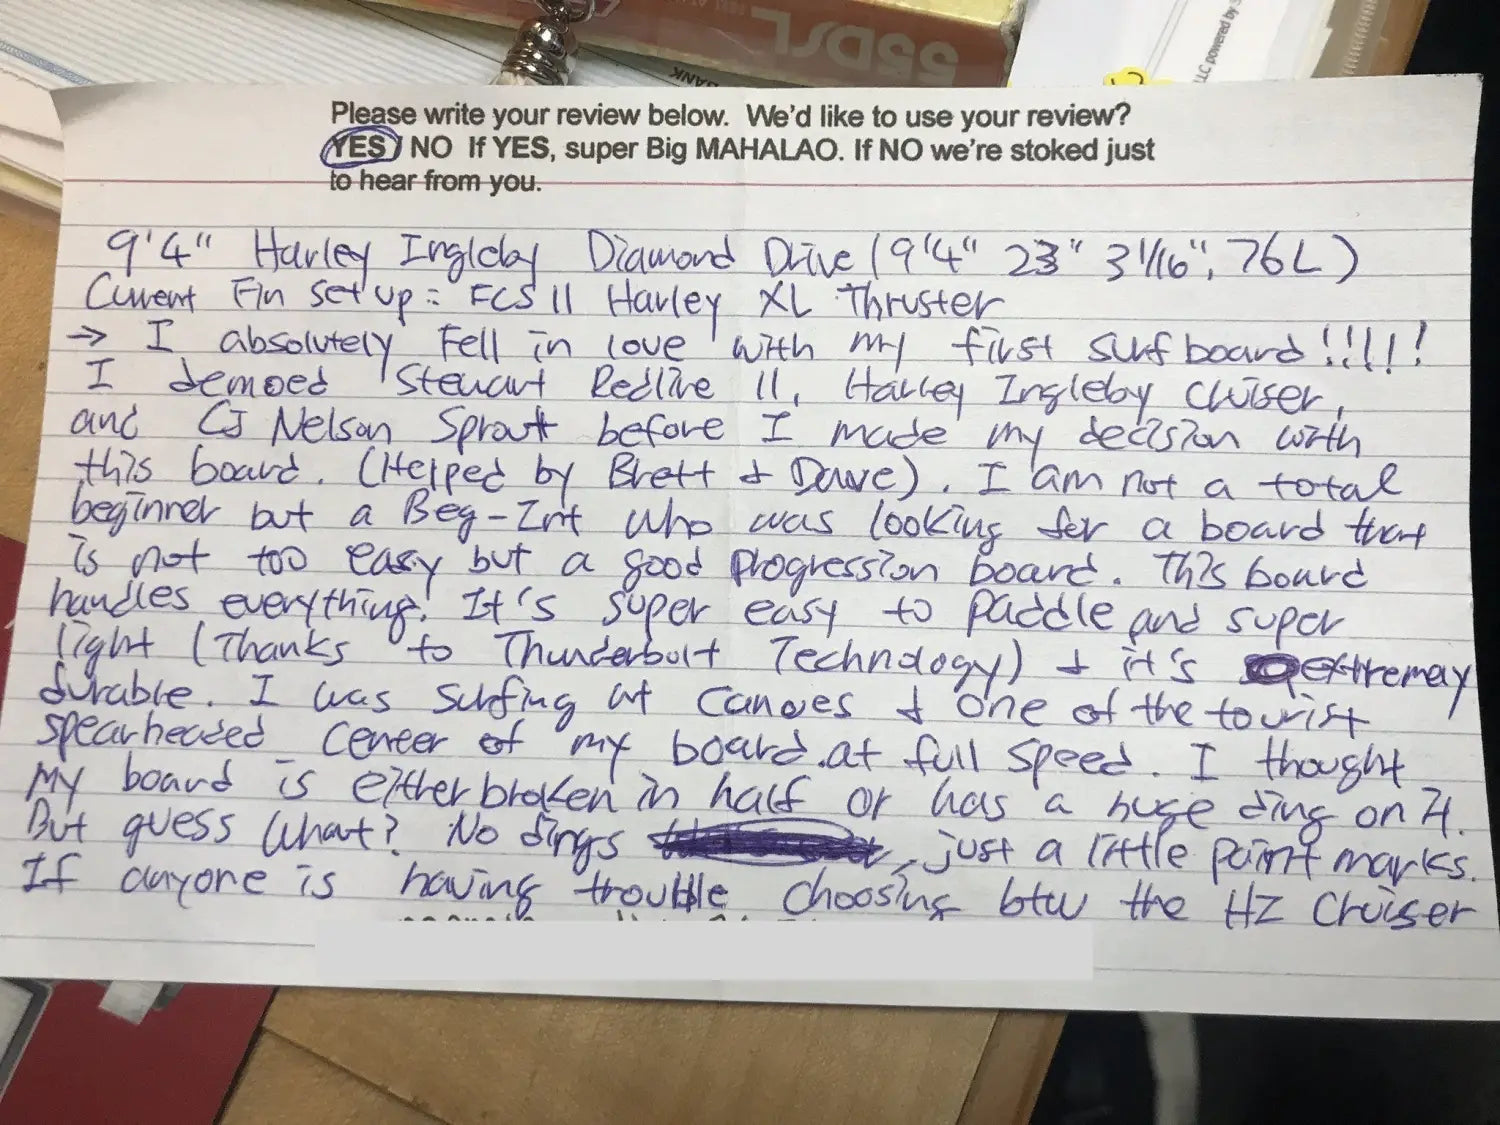 SSDSL
BANK
LLC powered by
Please write your review below. We'd like to use your review?
YES NO If YES, super Big MAHALAO. If NO we're stoked just
to hear from you.
9'4" Harley Ingleby Diamond Drive (9'4" 23" 3 1/16", 76L)
Current Fin set up: FCS II Harley XL Thruster
→ I absolutely Fell in love with my first surfboard!!!!!
I demoed Stewart Redline 11, Harley Ingleby Cruiser,
and CJ Nelson Sprout before I made my decision with
this board. (Helped by Brett & Dave). I am not a total
beginner but a Beg-Int who was looking for a board that
is not too easy but a good progression board. This board
handles everything! It's super easy to paddle and super
light (Thanks to Thunderbolt Technology) & it's extremey
durable. I was surfing at Canoes & one of the tourist
spearheaded center of my board at full speed. I thought
My board is either broken in half or has a huge ding on it.
But guess what? No dings, just a little paint marks.
If anyone is having trouble choosing btw the HZ Cruiser